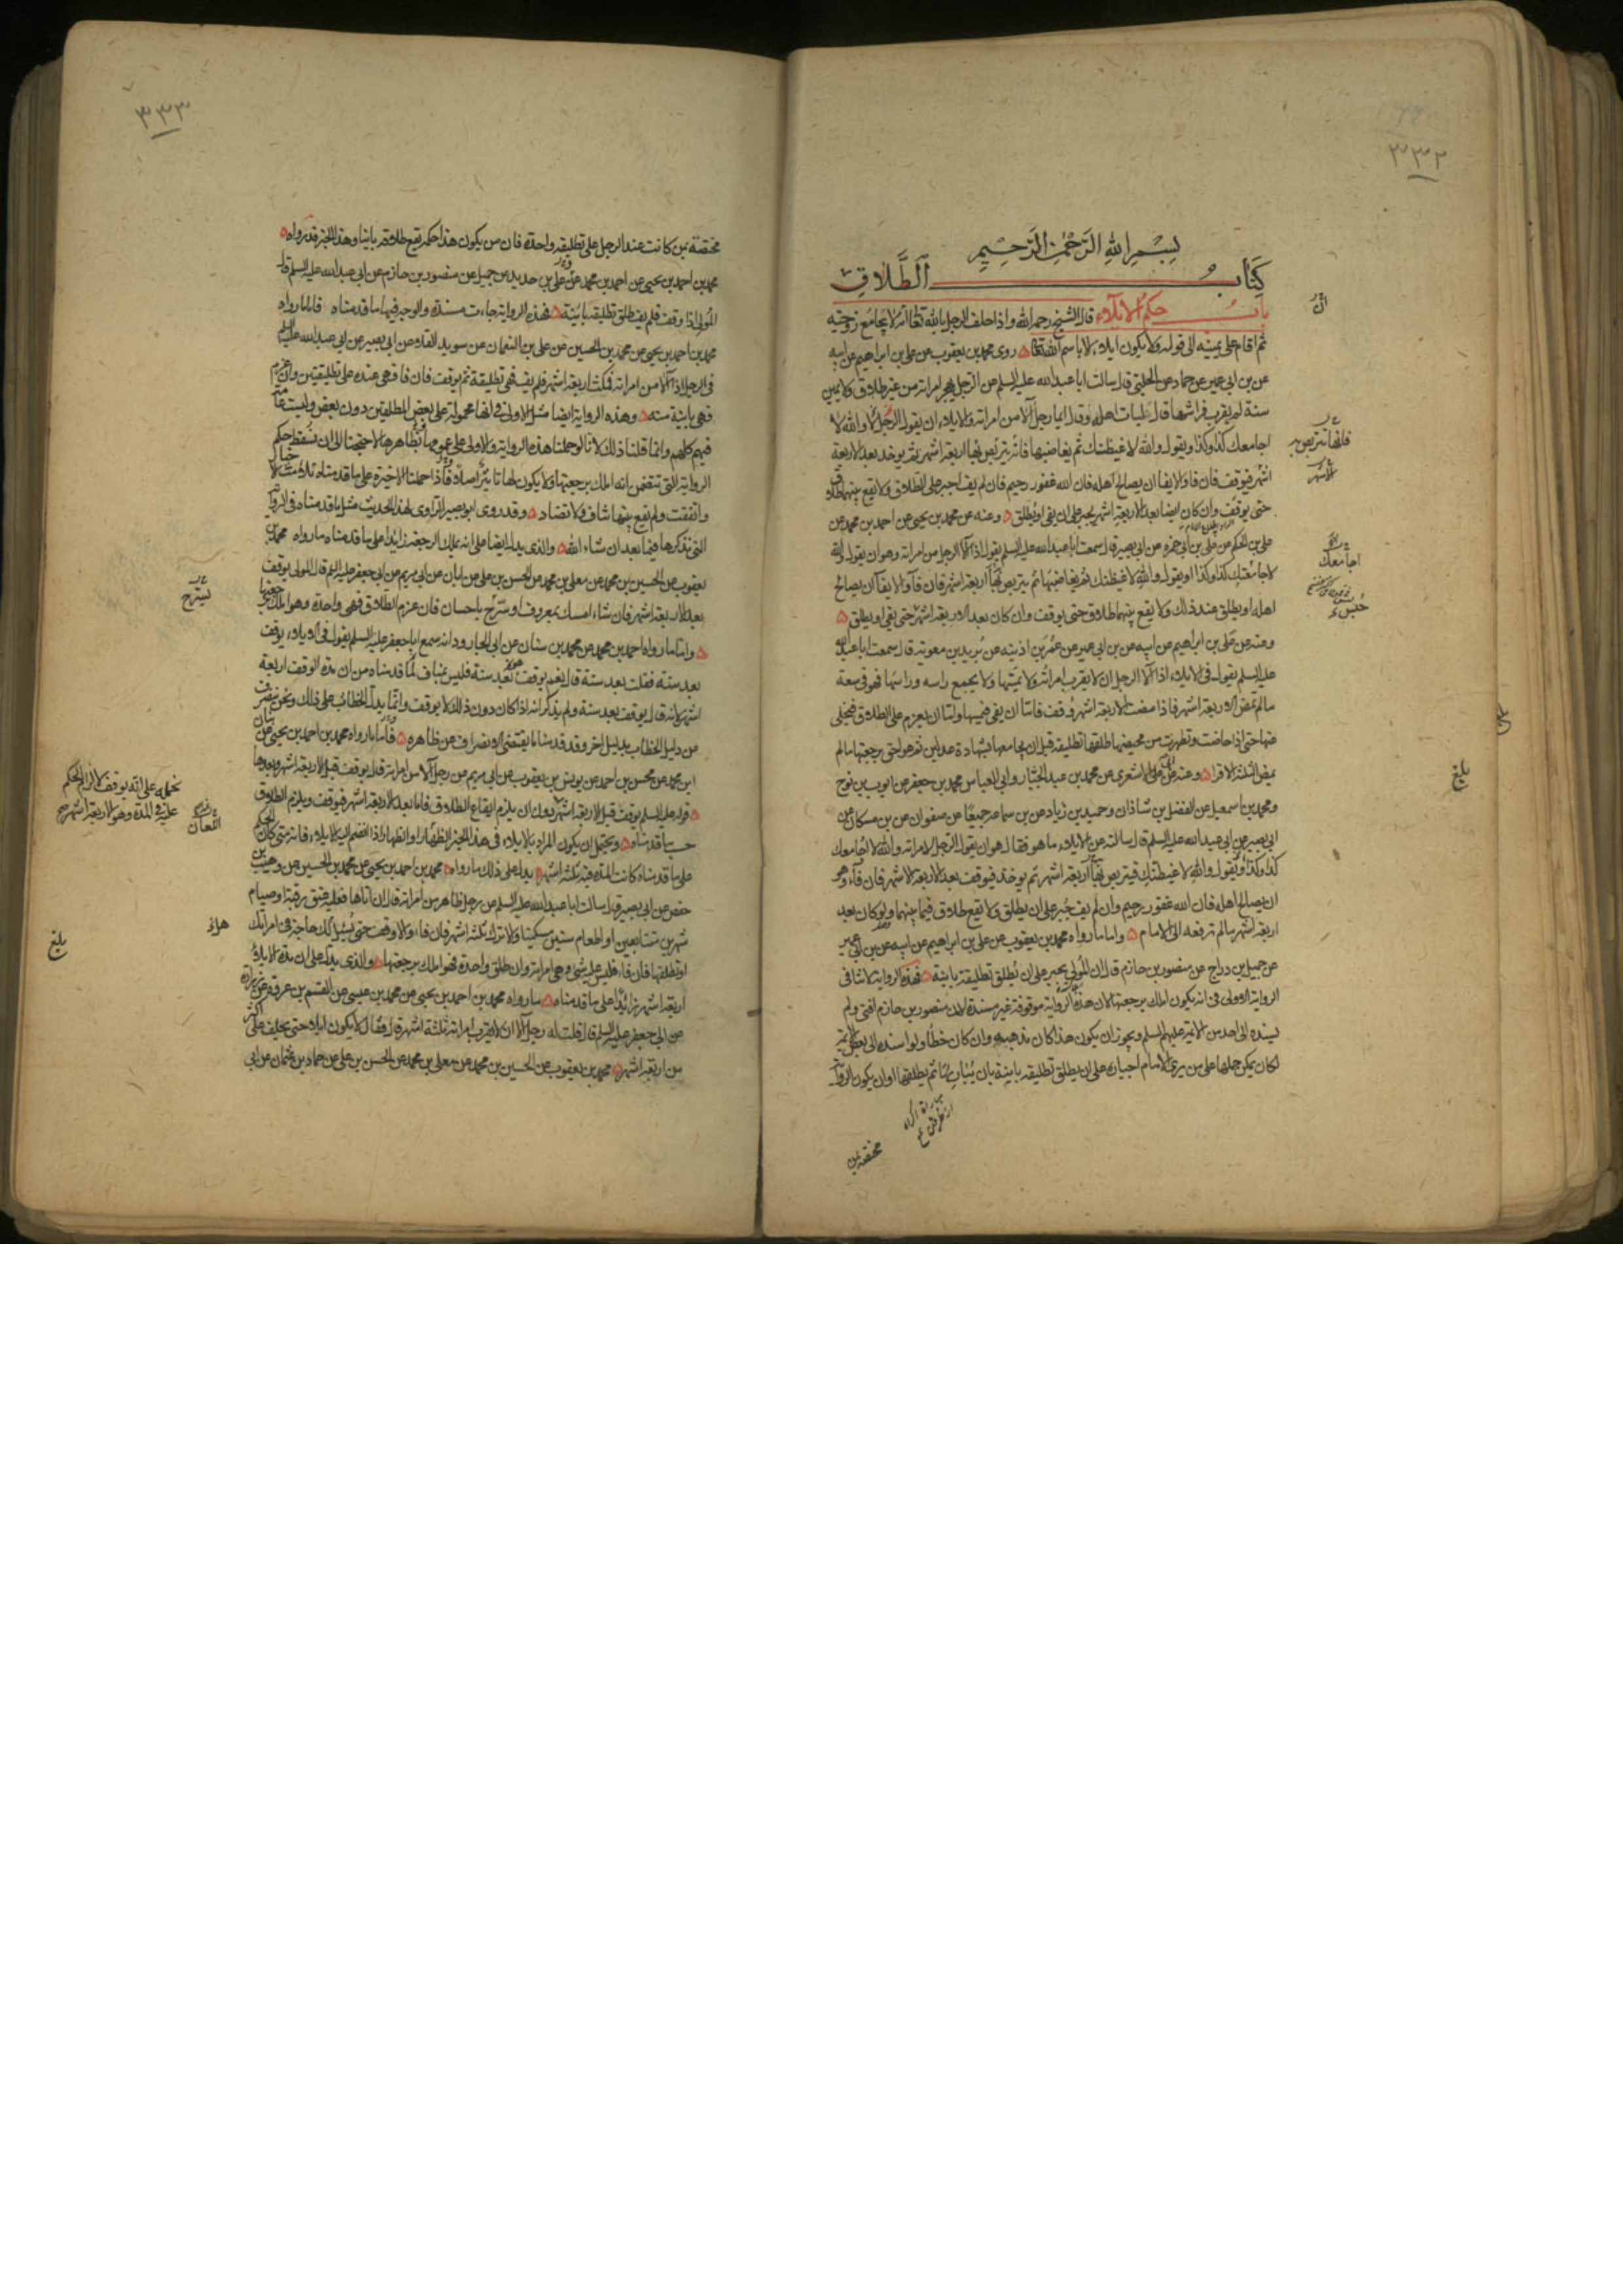 ٣٣٢
بسم الله الرحمن الرحيم
كتاب الطلاق
باب حكم الايلاء قال الشيخ رحمه الله واذا حلف الرجل بالله تعالى انه لا يجامع زوجته
ثم اقام على يمينه الى قوله ولا يكون ايلاء الا باسم الله تعالى روى محمد بن يعقوب عن علي بن ابراهيم عن ابيه
عن بن ابي عمير عن حماد عن الحلبي قال سالت ابا عبد الله عليه السلم عن الرجل يهجر امراته من غير طلاق ولا يمين
سنة لم يقرب فراشها قال ليات اهله وقال ايما رجل آلا من امراته والايلاء ان يقول الرجل لا والله لا
اجامعك كذا وكذا ويقول والله لاغيظنك ثم يغاضبها فانه يتربص بها اربعة اشهر ثم يوخذ بعد الاربعة
اشهر فيوقف فان فا والايفا ان يصالح اهله فان الله غفور رحيم فان لم يف اجبر على الطلاق ولا يقع بينهما طلاق
حتى يوقف وان كان ايضا بعد الاربعة اشهر يجبر على ان يفي او يطلق وعنه عن محمد بن يحيى عن احمد بن محمد عن
علي بن الحكم عن علي بن ابي حمزه عن ابي بصير قال سمعت ابا عبد الله عليه السلم يقول اذا آلا الرجل من امراته وهو ان يقول والله
لا جامعتك كذا وكذا او يقول والله لاغيظنك ثم يغاضبها ثم يتربص بها اربعة اشهر فان فآ والايفآ ان يصالح
اهله او يطلق عند ذلك ولا يقع بينهما طلاق حتى يوقف وان كان بعد الاربعة اشهر حتى يفي او يطلق
وعنه عن علي بن ابراهيم عن ابيه عن بن ابي عمير عن عمر بن اذينه عن بريد بن معويه قال سمعت ابا عبد الله
عليه السلم يقول في الايلاء اذا آلا الرجل ان لا يقرب امراته ولا يمسها ولا يجمع راسه وراسها فهو في سعة
مالم تمض الاربعة اشهر فاذا مضت الاربعة اشهر وقف فاما ان يفي فيمسها واما ان يعزم على الطلاق فيخلى
عنها حتى اذا حاضت وتطهرت من محيضها طلقها تطليقة قبل ان يجامعها بشهادة عدلين ثم هو احق برجعتها مالم
تمض الثلثة الاقرا وعنه عن ابي علي الاشعري عن محمد بن عبد الجبار وابي العباس محمد بن جعفر عن ايوب بن نوح
ومحمد بن اسمعيل عن الفضل بن شاذان وحميد بن زياد عن بن سماعه جميعا عن صفوان عن بن مسكان عن
ابي بصير عن ابي عبد الله عليه السلم قال سالته عن الايلاء ما هو فقال هو ان يقول الرجل لامراته والله لا اجامعك
كذا وكذا ويقول والله لاغيظنك فيتربص بها اربعة اشهر ثم يوخذ فيوقف بعد الاربعة الاشهر فان فآء وهو
ان يصالح اهله فان الله غفور رحيم وان لم يف جبر على ان يطلق ولا يقع طلاق فيما بينهما ولو كان بعد
اربعة اشهر مالم ترفعه الى الامام واما ما رواه محمد بن يعقوب عن علي بن ابراهيم عن ابيه عن بن ابي عمير
عن جميل بن دراج عن منصور بن حازم قال ان المولي يجبر على ان يطلق تطليقة باينة فهذه الرواية لا تنافي
الرواية الاولى في انه يكون املك برجعتها لان هذه الرواية موقوفة غير مسندة لان منصور بن حازم افتى ولم
يسنده الى احد من الائمة عليهم السلم ويجوز ان يكون هذا كان مذهبه وان كان خطأ ولو اسنده الى بعض الائمة
لكان يمكن حملها على من يرى الامام اجباره على ان يطلق تطليقه باينة بان يباريها ثم يطلقها او ان يكون الرواية
مختصة بمن
فلها تتربص
اجامعك
بلغ
٣٣٣
مختصة بمن كانت عند الرجل على تطليقه واحدة فان من يكون هذا حكمه يقع طلاقه باينا وهذا الخبر قد رواه
محمد بن احمد بن يحيى عن احمد بن محمد عن علي بن حديد عن جميل عن منصور بن حازم عن ابي عبد الله عليه السلم قال
المولي اذا وقف فلم يف طلق تطليقه بائنة فهذه الرواية جاءت مسندة والوجه فيها ما قدمناه فاما ما رواه
محمد بن احمد بن يحيى عن محمد بن الحسين عن علي بن النعمان عن سويد القلاء عن ابي بصير عن ابي عبد الله عليه السلم
في الرجل اذا آلا من امراته فمكث اربعة اشهر فلم يف فهي تطليقة ثم يوقف فان فا فهي عنده على تطليقتين وان عزم
فهي باينة منه وهذه الرواية ايضا مثل الاولى في انها محمولة على بعض المطلقين دون بعض وليست عامة
فيهم كلهم وانما قلنا ذلك لانا لو حملنا هذه الرواية والاولى على عمومها بظاهرها لاحتجنا الى ان نسقط حكم
الرواية التي تتضمن انه املك برجعتها ولا يكون لها تاثير اصلا فاذا حملنا الاخيرة على ما قدمناه تلامت الاخبار
واتفقت ولم يقع بينها تناف ولا تضاد وقد روى ابو بصير الراوي لهذا الحديث مثل ما قدمناه في الرواية
التي نذكرها فيما بعد ان شاء الله والذي يدل ايضا على انه يملك الرجعة زايدا على ما قدمناه ما رواه محمد بن
يعقوب عن الحسين بن محمد عن معلى بن محمد عن الحسن بن علي عن ابان عن ابي مريم عن ابي جعفر عليه السلم قال المولي يوقف
بعد الاربعة اشهر فان شاء امسك بمعروف او سرح باحسان فان عزم الطلاق فهي واحدة وهو املك برجعتها
واما ما رواه احمد بن محمد عن محمد بن سنان عن ابي الجارود انه سمع ابا جعفر عليه السلم يقول في الايلاء يوقف
بعد سنة فقلت بعد سنة قال نعم يوقف بعد سنة فليس بمناف لما قدمناه من ان مدة الوقف اربعة
اشهر لانه قال يوقف بعد سنة ولم يذكر انه اذا كان دون ذلك لا يوقف وانما يدل الخطاب على ذلك ونحن ننصرف
عن دليل الخطاب بدليل اخر وقد قدمنا ما يقتضي الانصراف عن ظاهره فاما ما رواه محمد بن احمد بن يحيى عن بنان
ابن محمد عن محسن بن احمد عن يونس بن يعقوب عن ابي مريم عن رجل آلا من امراته قال يوقف قبل الاربعة اشهر وبعدها
قوله عليه السلم يوقف قبل الاربعة اشهر دون ان يلزم ايقاع الطلاق فاما بعد الاربعة اشهر فيوقف ويلزم الطلاق
حسب ما قدمناه ويحتمل ان يكون المراد بالايلاء في هذا الخبر الظهار او الظهار اذا انضم اليه الايلاء فانه متى كان الحكم
على ما قدمناه كانت المدة فيه ثلثة اشهر يدل على ذلك ما رواه محمد بن احمد بن يحيى عن محمد بن الحسين عن وهيب بن
حفص عن ابي بصير قال سالت ابا عبد الله عليه السلم عن رجل ظاهر من امراته قال ان اتاها فعليه عتق رقبة او صيام
شهرين متتابعين او اطعام ستين مسكينا والا ترك ثلثة اشهر فان فاء والا وقف حتى يسئل الك حاجة في امراتك
او تطلقها فان فاء فليس عليه شئ وهي امراته وان طلق واحدة فهو املك برجعتها والذي يدل على ان مدة الايلاء
اربعة اشهر زائدا على ما قدمناه ما رواه محمد بن احمد بن يحيى عن محمد بن عيسى عن القسم بن عروة عن زرارة
عن ابي جعفر عليه السلم قال قلت له رجل آلا ان لا يقرب امراته ثلثة اشهر قال فقال لا يكون ايلاء حتى يحلف على اكثر
من اربعة اشهر محمد بن يعقوب عن الحسين بن محمد عن معلى بن محمد عن الحسن بن علي عن حماد بن عثمان عن ابي
تسريح
نحمله على انه يوقف لالزام الحكم
عليه في المدة وهو الاربعة اشهر صح
بلغ